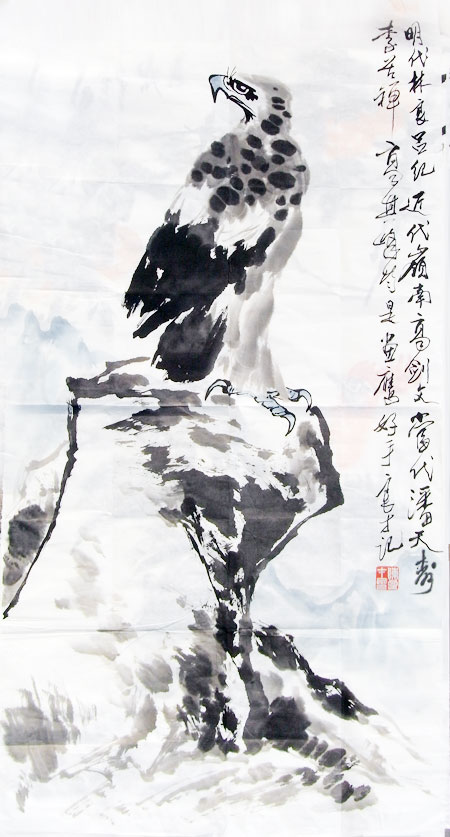 明代林良吕纪 近代嶺南高剑父當代潘天寿
李苦禅 高其峰皆是画鹰好手 才记